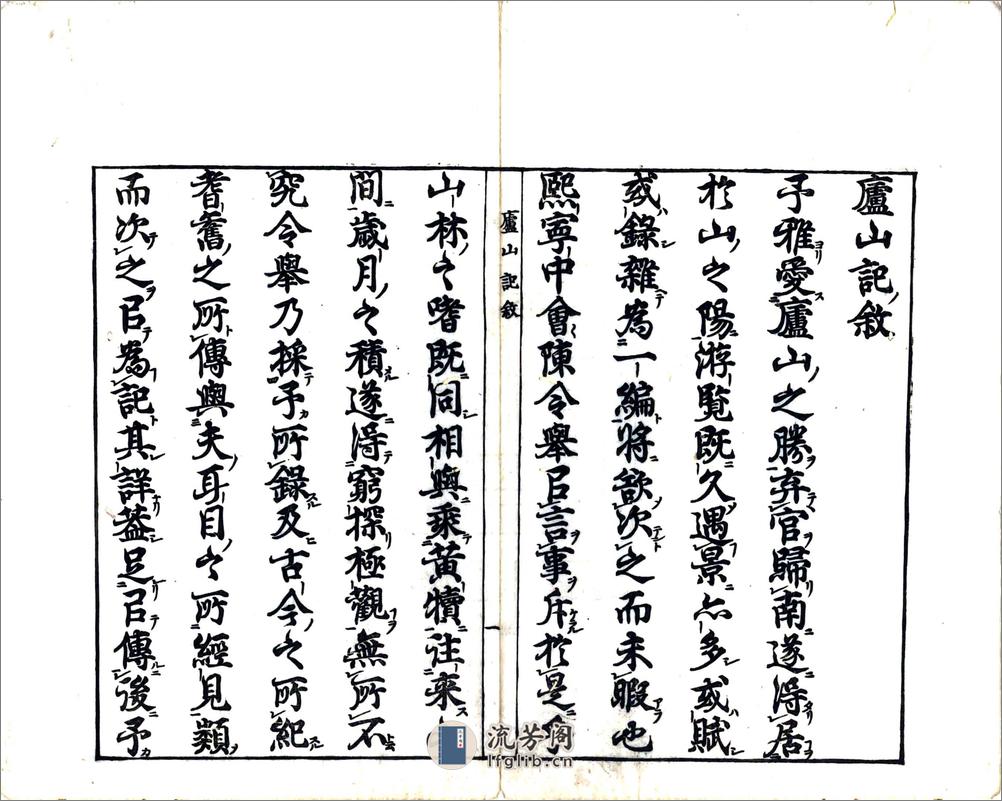 廬山記敘
予雅愛廬山之勝弃官歸南遂淂居
於山之陽游覽既久遇景亦多或賦
或錄雜為一編將欲次之而未暇也
熙寧中會陳令舉㠯言事斥於是乎
廬山記敘
一
山林之嗜既同相與乘黃犢往來
間歲月之積遂淂窮探極觀無所不
究令舉乃採予所錄及古今之所紀
耆舊之所傳與夫耳目之所經見類
而次之㠯為記其詳蓋足㠯傳後予
流芳阁
lfglib.cn